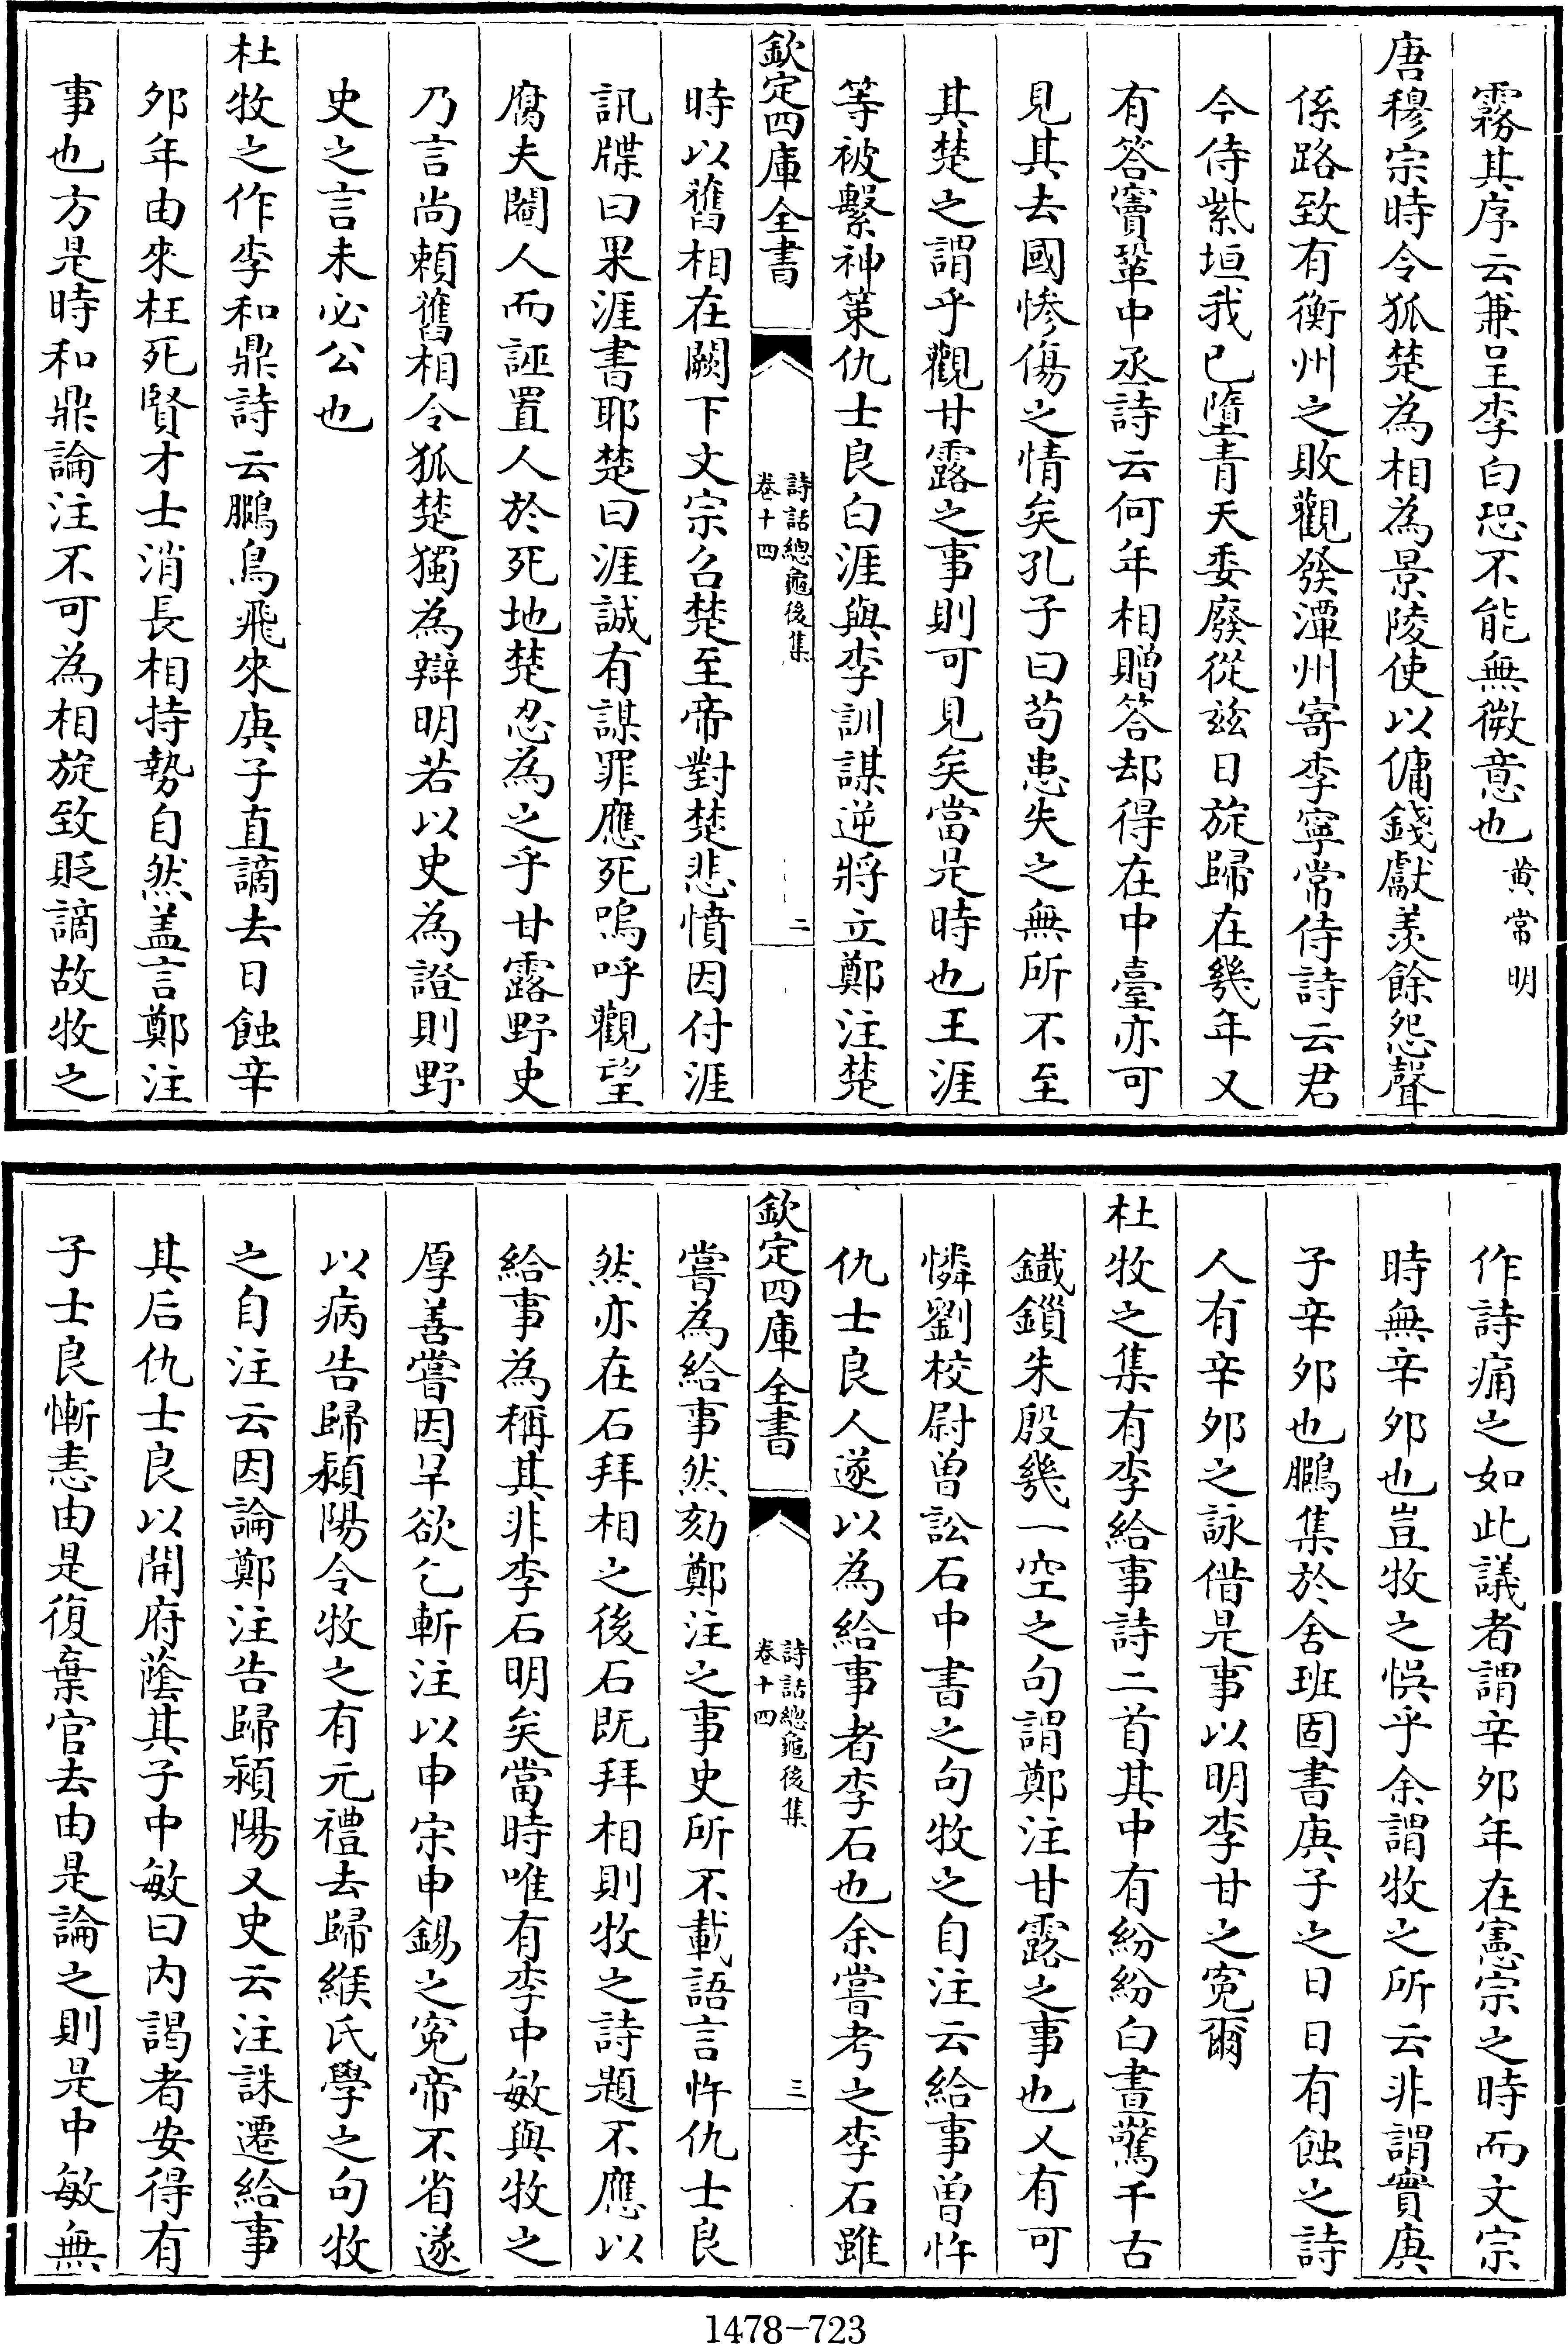 霧其序云兼呈李白恐不能無微意也黄常明
唐穆宗時令狐楚為相為景陵使以傭錢獻羡餘怨聲
係路致有衡州之敗觀發潭州寄李寧常侍詩云君
今侍紫垣我已墮青天委廢從兹日旋歸在幾年又
有答竇鞏中丞詩云何年相贈答却得在中臺亦可
見其去國慘傷之情矣孔子曰苟患失之無所不至
其楚之謂乎觀甘露之事則可見矣當是時也王涯
等被繫神策仇士良白涯與李訓謀逆將立鄭注楚
欽定四庫全書
詩話總龜後集
卷十四
二
時以舊相在闕下文宗召楚至帝對楚悲憤因付涯
訊牒曰果涯書耶楚曰涯誠有謀罪應死嗚呼觀望
腐夫閹人而誣置人於死地楚忍為之乎甘露野史
乃言尚賴舊相令狐楚獨為辯明若以史為證則野
史之言未必公也
杜牧之作李和鼎詩云鵩鳥飛來庚子直謫去日蝕辛
夘年由來枉死賢才士消長相持勢自然盖言鄭注
事也方是時和鼎論注不可為相旋致貶謫故牧之
作詩痛之如此議者謂辛夘年在憲宗之時而文宗
時無辛夘也豈牧之悞乎余謂牧之所云非謂實庚
子辛夘也鵩集於舍班固書庚子之日日有蝕之詩
人有辛夘之詠偕是事以明李甘之寃爾
杜牧之集有李給事詩二首其中有紛紛白晝驚千古
鐵鎻朱殷幾一空之句謂鄭注甘露之事也又有可
憐劉校尉曽訟石中書之句牧之自注云給事曽忤
仇士良人遂以為給事者李石也余嘗考之李石雖
欽定四庫全書
詩話總龜後集
卷十四
三
嘗為給事然劾鄭注之事史所不載語言忤仇士良
然亦在石拜相之後石既拜相則牧之詩題不應以
給事為稱其非李石明矣當時唯有李中敏與牧之
厚善嘗因旱欲乞斬注以申宋申錫之寃帝不省遂
以病告歸潁陽令牧之有元禮去歸緱氏學之句牧
之自注云因論鄭注告歸潁陽又史云注誅遷給事
其后仇士良以開府蔭其子中敏曰内謁者安得有
子士良慚恚由是復棄官去由是論之則是中敏無
1478-723